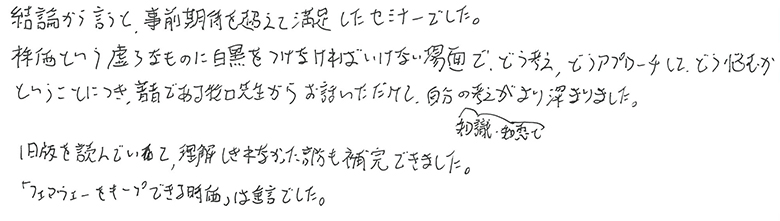 結論から言うと、事前期待を超えて満足したセミナーでした。
株価という虚ろなものに白黒をつけなければいけない場面で、どう考え、どうアプローチして、どう悩むか
ということにつき、著者である牧口先生からお話いただけて、自分の考えがより深まりました。
知識・知恵で
旧版を読んでいて、理解しきれなかった部分も補完できました。
「フェアウェーをキープできる時価」は金言でした。